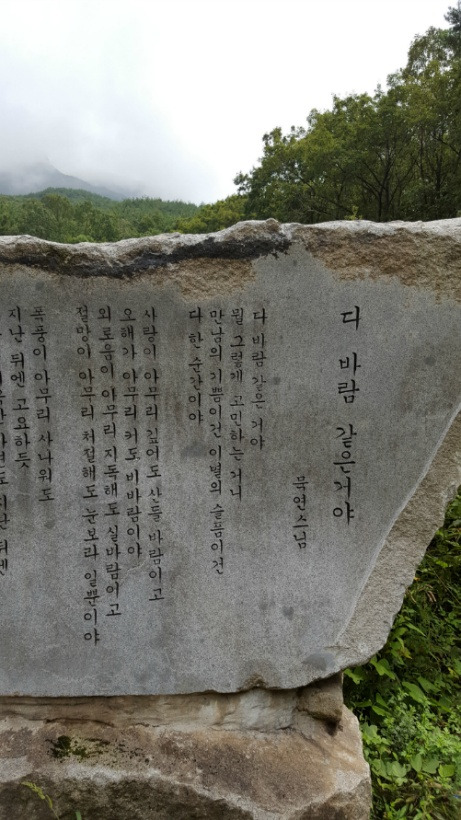 다 바람 같은거야
묵연스님
다 바람 같은 거야
뭘 그렇게 고민하는 거니
만남의 기쁨이건 이별의 슬픔이건
다 한 순간이야
사랑이 아무리 깊어도 산들 바람이고
오해가 아무리 커도 비바람이야
외로움이 아무리 지독해도 실바람이고
절망이 아무리 처절해도 눈보라 일뿐이야
폭풍이 아무리 사나워도
지난 뒤엔 고요하듯
지난 뒤엔